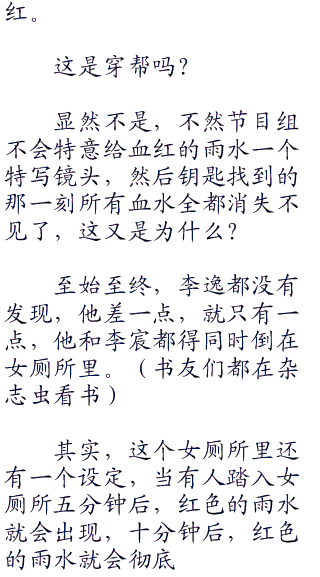 红。
这是穿帮吗？
显然不是，不然节目组
不会特意给血红的雨水一个
特写镜头，然后钥匙找到的
那一刻所有血水全都消失不
见了，这又是为什么？
至始至终，李逸都没有
发现，他差一点，就只有一
点，他和李宸都得同时倒在
女厕所里。（书友们都在杂
志虫看书）
其实，这个女厕所里还
有一个设定，当有人踏入女
厕所五分钟后，红色的雨水
就会出现，十分钟后，红色
的雨水就会彻底